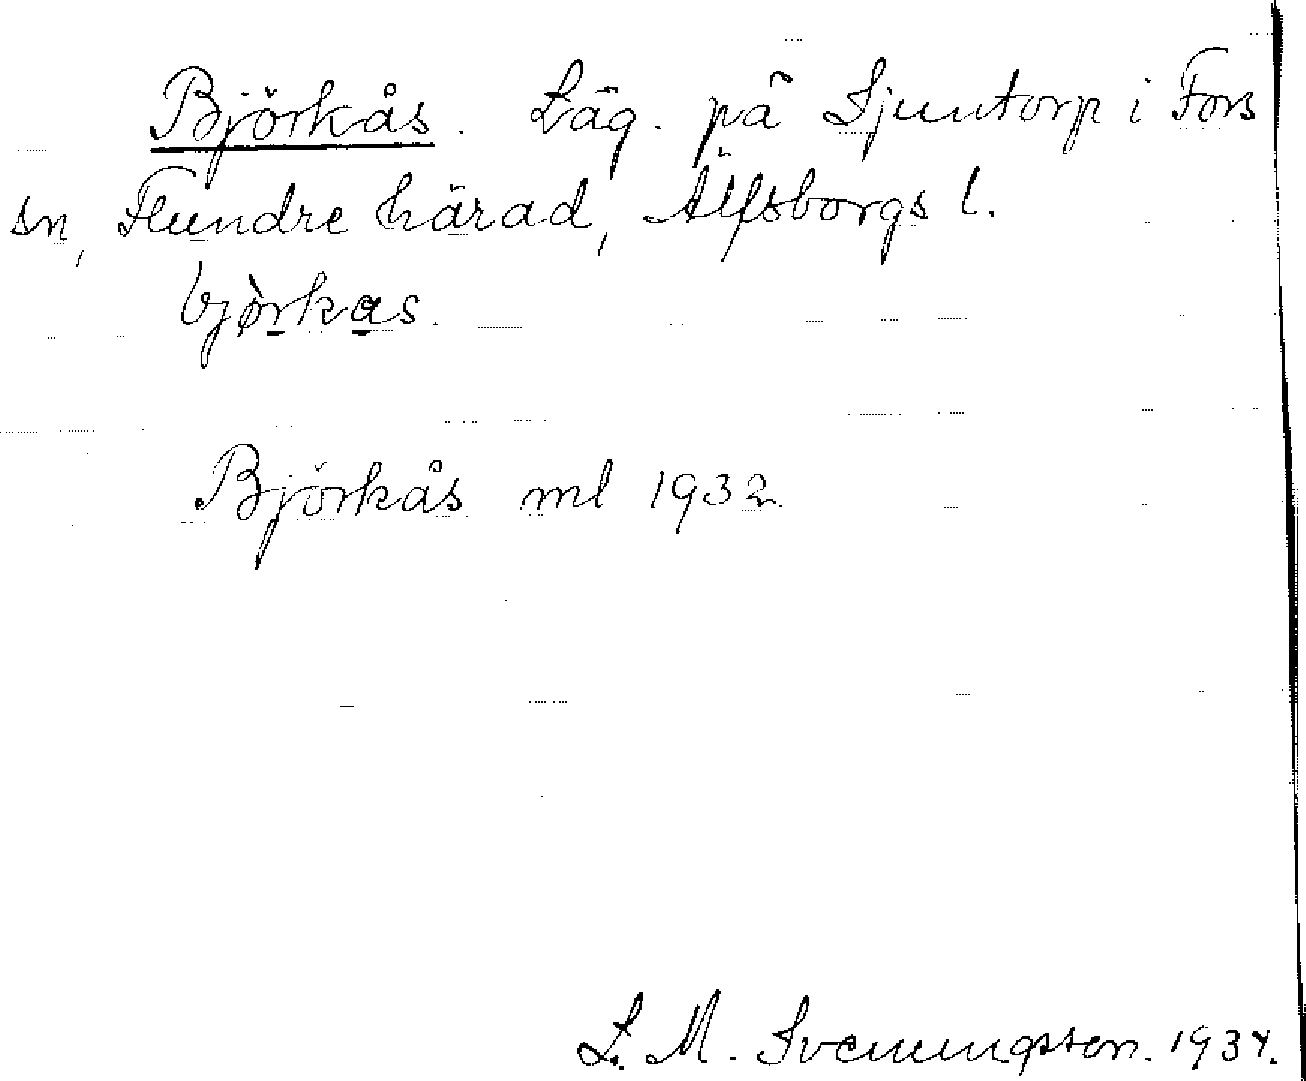 Björkås. Läg. på Sjuntorp i Fors
sn, Flundre härad, Älfsborgs l.
bjø̀rkas.
Björkås ml 1932
L. M. Svenungsson. 1934.